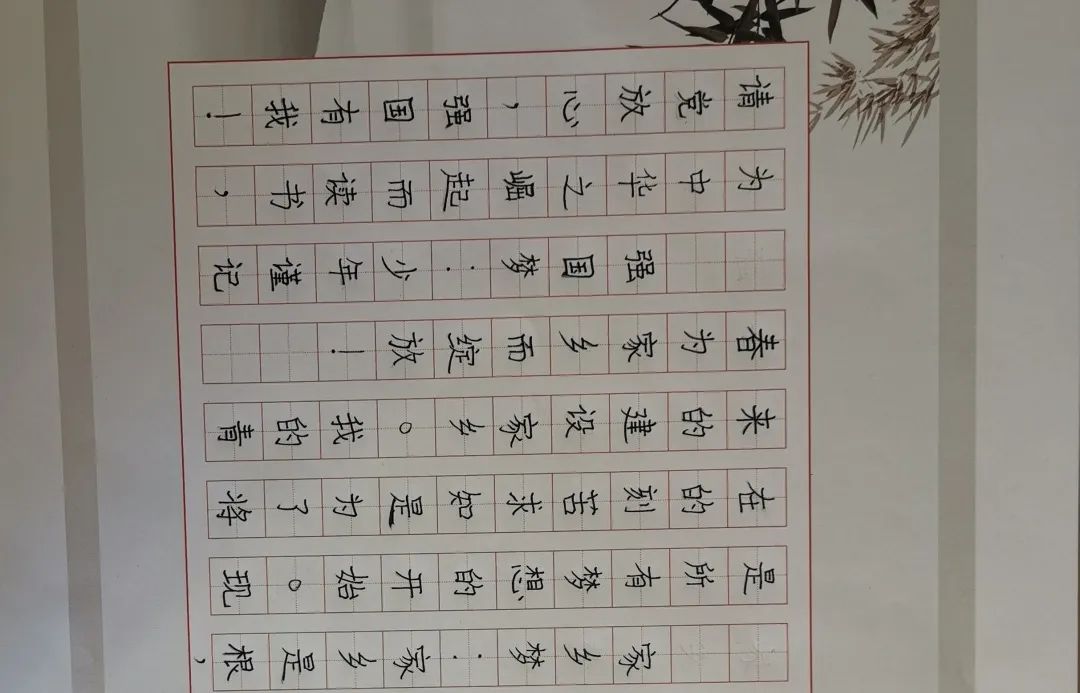 家乡梦：家乡是根，
是所有梦想的开始。现
在的刻苦求知是为了将
来的建设家乡。我的青
春为家乡而绽放！
强国梦：少年谨记
为中华之崛起而读书，
请党放心，强国有我！